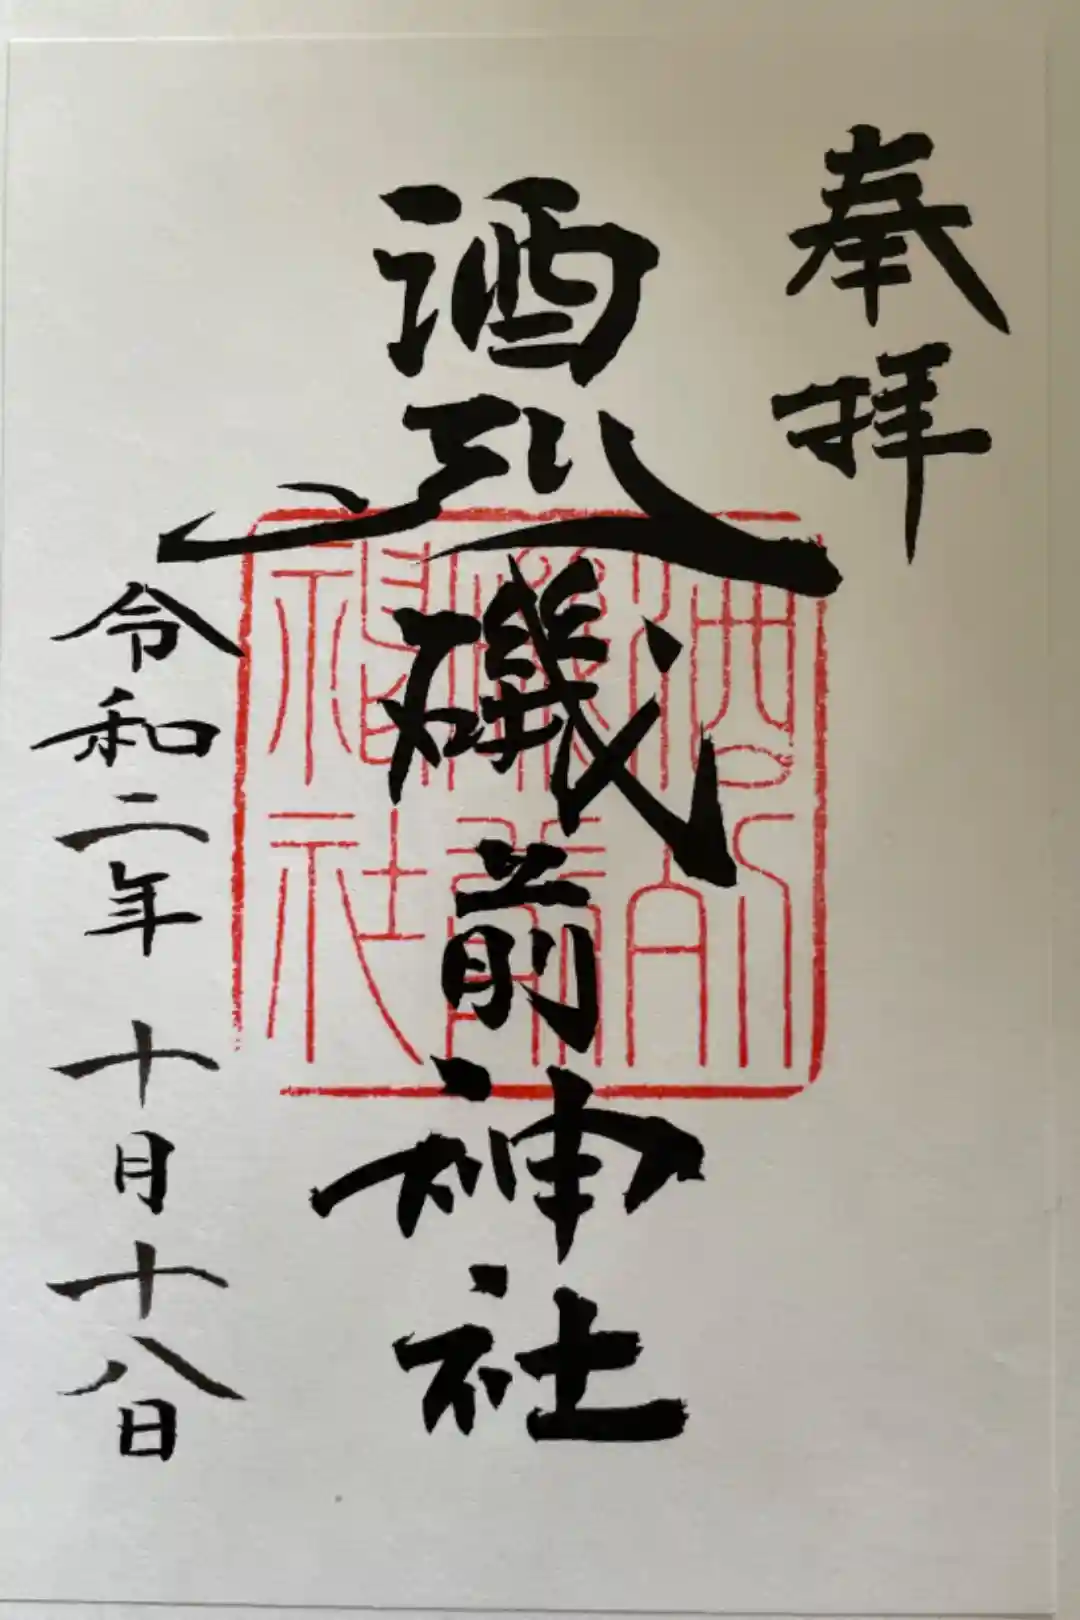 奉拝
酒列磯前神社
令和二年十月十八日
酒列
磯前
神社